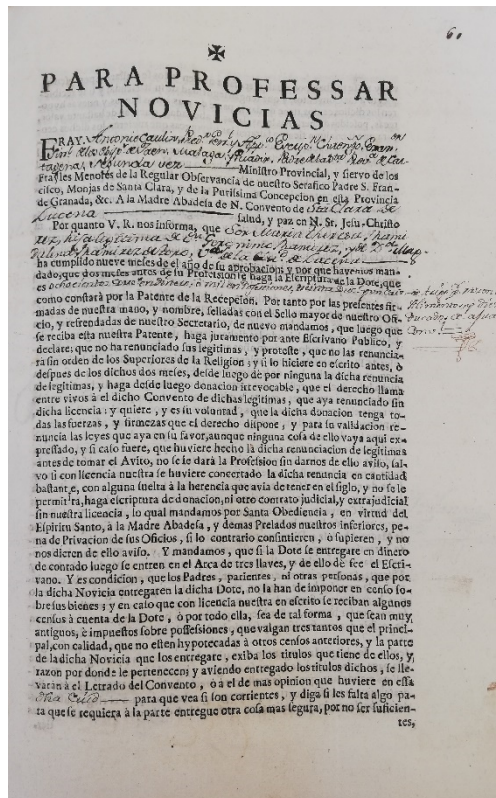 6.
✠
PARA PROFESSAR
NOVICIAS
FRAY Antonio
Segunda vez Ministro Provincial, y siervo de los
Frayles Menores de la Regular Observancia de nuestro Serafico Padre S. Fran-
cisco, Monjas de Santa Clara, y de la Purissima Concepcion en esta Provincia
de Granada, &c. A la Madre Abadesa de N. Convento de Sta Clara de
Lucena salud, y paz en N. Sr. Jesu-Christo
Por quanto V. R. nos informa, que Sor Maria Theresa Rami
rez, hija legitima de Dn Geronimo Ramirez, y de Da
de la Ciud de Lucena
ha cumplido nueve meses de el año de su aprobacion; y por que havemos man-
dado, que dos meses antes de su Profession se haga la Escriptura de la Dote, que
es
como constarà por la Patente de la Recepcion. Por tanto por las presentes fir-
madas de nuestra mano, y nombre, selladas con el Sello mayor de nuestro Ofi-
cio, y refrendadas de nuestro Secretario, de nuevo mandamos, que luego que
se reciba esta nuestra Patente, haga juramento por ante Escrivano Publico, y
declare; que no ha renunciado sus legitimas, y proteste, que no las renuncia-
ra sin orden de los Superiores de la Religion; y si lo hiciere en escrito antes, ò
despues de los dichos dos meses, desde luego dè por ninguna la dicha renuncia
de legitimas, y haga desde luego donacion irrevocable, que el derecho llama
entre vivos à el dicho Convento de dichas legitimas, que aya renunciado sin
dicha licencia; y quiere, y es su voluntad, que la dicha donacion tenga to-
das las fuerzas, y firmezas que el derecho dispone, y para su validacion re-
nuncia las leyes que aya en su favor, aunque ninguna cosa de ello vaya aqui ex-
pressado, y si caso fuere, que huviere hecho la dicha renunciacion de legitimas
antes de tomar el Avito, no se le darà la Profession sin darnos de ello aviso, sal-
vo si con licencia nuestra se huviere concertado la dicha renuncia en cantidad
bastante, con alguna suelta à la herencia que avia de tener en el siglo, y no se le
permitirà, haga escriptura de donacion, ni otro contrato judicial, y extrajudicial
sin nuestra licencia, lo qual mandamos por Santa Obediencia, en virtud del
Espiritu Santo, à la Madre Abadesa, y demas Prelados nuestros inferiores, pe-
na de Privacion de sus Oficios, si lo contrario consintieren, ò supieren, y no
nos dieren de ello aviso. Y mandamos, que si la Dote se entregare en dinero
de contado luego se entren en el Arca de tres llaves, y de ello dè fee el Escri-
vano. Y es condicion, que los Padres, parientes, ni otras personas, que por
la dicha Novicia entregaren la dicha Dote, no la han de imponer en censo so-
bre sus bienes; y en caso que con licencia nuestra en escrito se reciban algunos
censos à cuenta de la Dote, ò por toda ella, sea de tal forma, que sean muy
antiguos, è impuestos sobre possessiones, que valgan tres tantos que el princi-
pal, con calidad, que no esten hypotecadas à otros censos anteriores, y la parte
de la dicha Novicia que los entregare, exiba los titulos que tiene de ellos, y
razon por donde le pertenecen; y aviendo entregado los titulos dichos, se lle-
varàn à el Letrado del Convento, ò à el de mas opinion que huviere en essa
dha Ciud para que vea si son corrientes, y diga si les falta algo pa-
ra que se requiera à la parte entregue otra cosa mas segura, por no ser suficien-
tes,